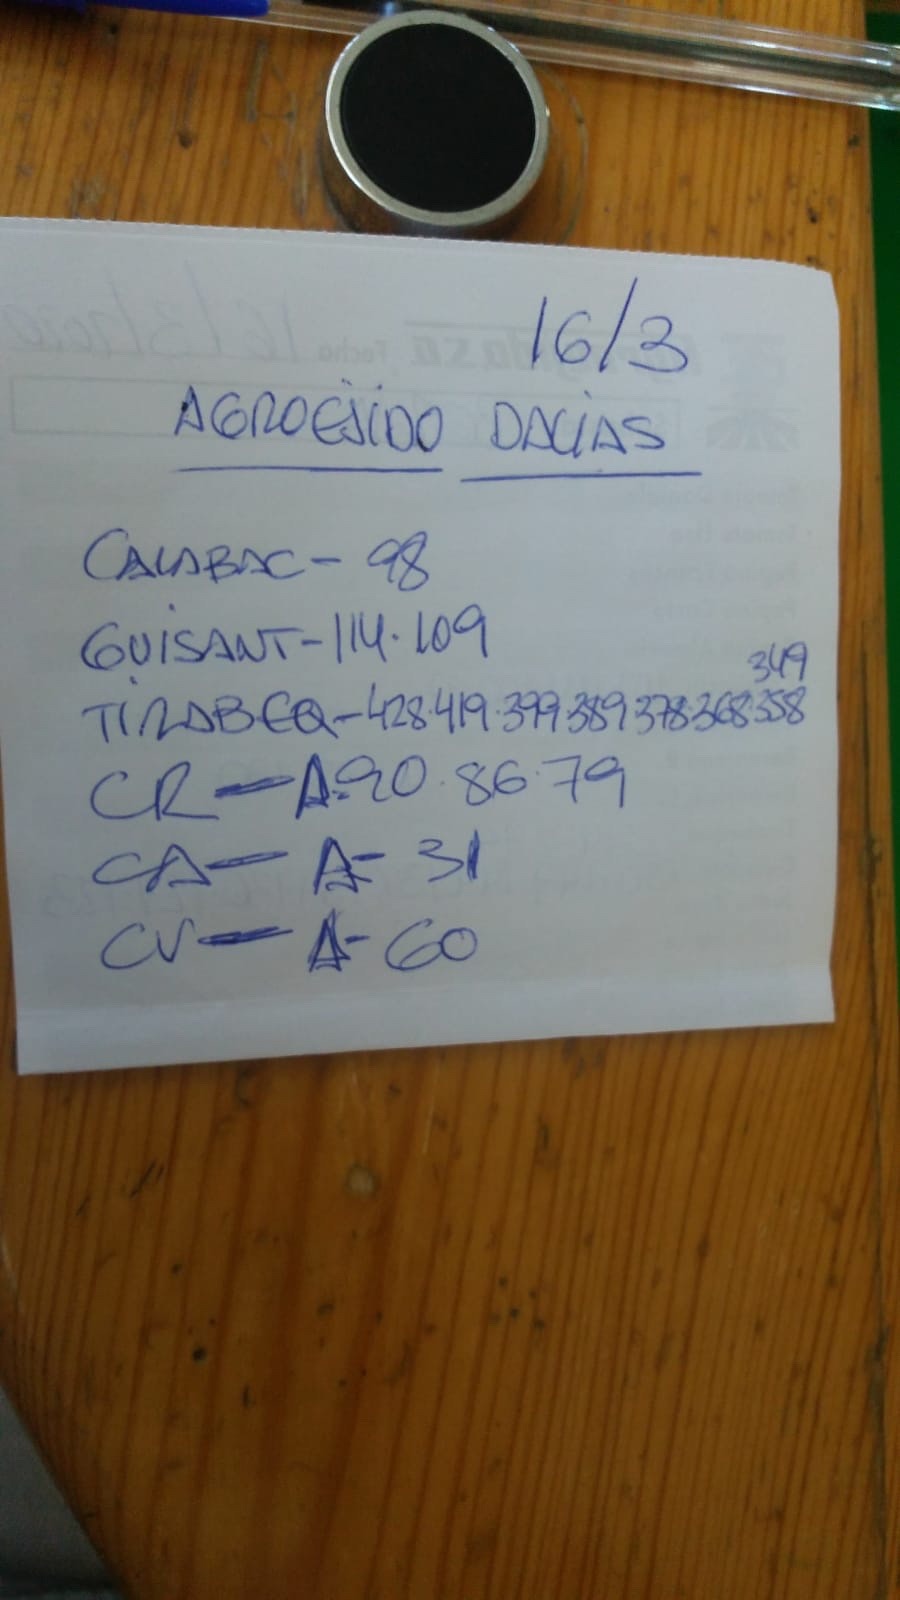 16/3
AGROEJIDO DALIAS
CALABAC - 98
GUISANT - 114.109
349
TIRABEQ - 428.419.399.389.378.368.358
CR - A-90.86.79
CA - A- 31
CV - A- 60